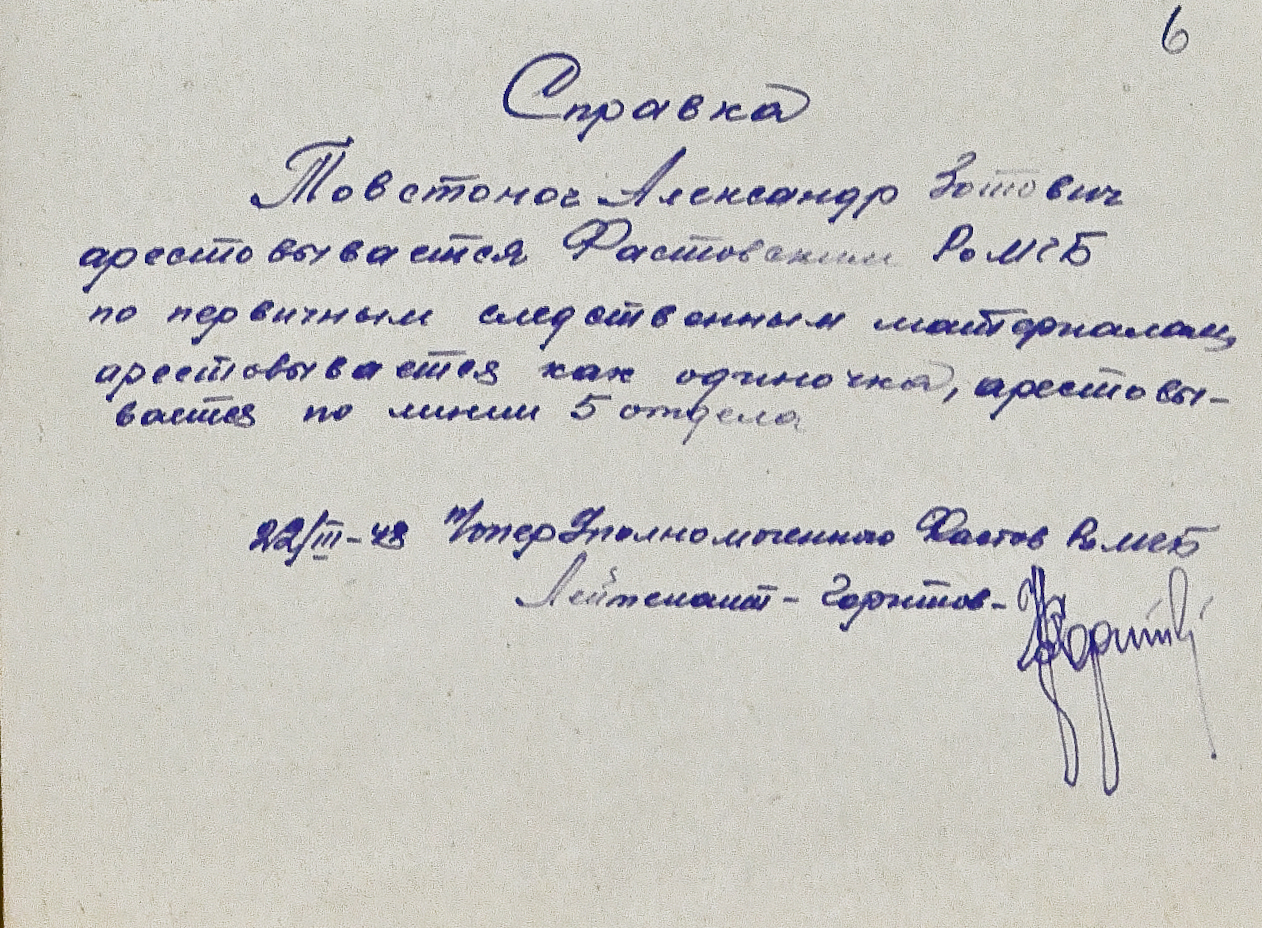 6
Справка
Товстоног Александр Зотович
арестовывается Фастовским РоМГБ
по первичным следственным материалам,
арестовывается как одиночка, арестовы-
вается по линии 5 отдела
22/III-48 Уполномоченного Фастов РоМГБ
Лейтенант -